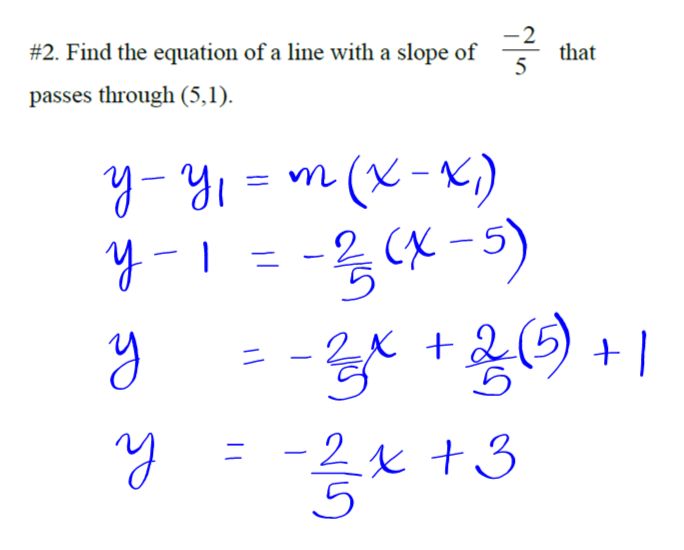 #2. Find the equation of a line with a slope of -2/5 that
passes through (5,1).
y - y₁ = m(x - x₁)
y - 1 = -2/5(x - 5)
y = -2/5x + 2/5(5) + 1
y = -2/5x + 3